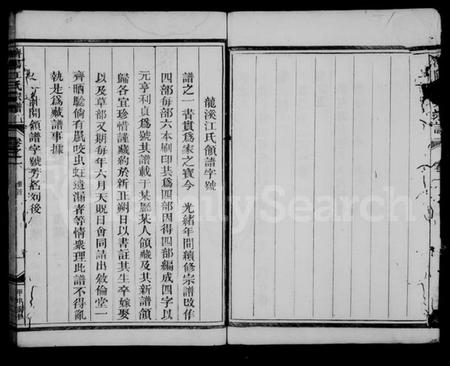 龍溪江氏領譜字號
譜之一書實為家之寶今 光緒年間續修宗譜改作
四部每部六本刷印共為四部因得四部編成四字以
元亨利貞為號其譜載于某縣某人領藏及其新譜領
歸各宜珍惜謹藏約於新正朔日以書註其生卒嫁娶
以及草部又期每年六月天貺日會同請出敘倫堂一
齊晒驗倘有鼠咬虫蛀遺漏者等情衆理此譜不得亂
執是為藏譜事據
開領譜字號 列後
FamilySearch